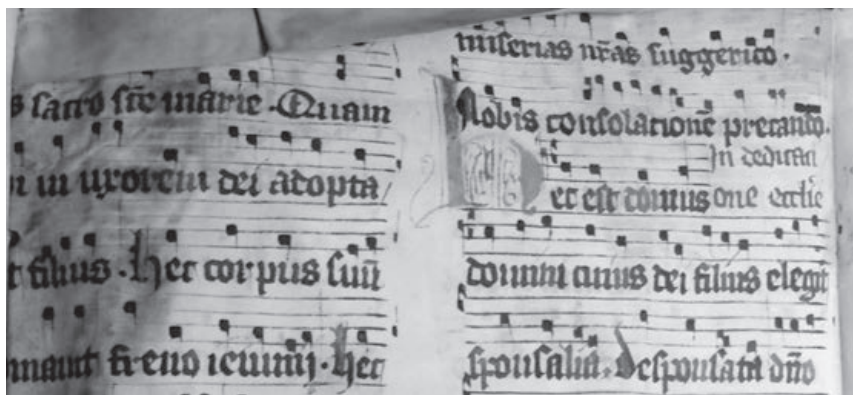 s sacro sc̄e marie · Quam
n in uxorem dei adopta
t filius · Hec corpus suū
mauit freno ieiunij · Hec
miserias nr̄as suggerito ·
Nobis consolationē precando.
In dedicati
ec est domus one eccl̄ie
domini cuius dei filius elegit
sponsalia · Desponsata dn̄o